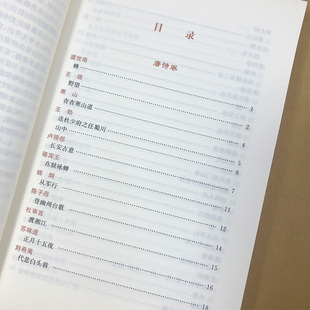 目 录
唐诗卷
虞世南
蝉 1
王 绩
野望 2
寒 山
杳杳寒山道 4
王 勃
送杜少府之任蜀川 5
山中 6
卢照邻
长安古意 7
骆宾王
在狱咏蝉 11
杨 炯
从军行
陈子昂
登幽州台歌
杜审言
渡湘江 15
苏味道
正月十五夜 16
刘希夷
代悲白头翁 18